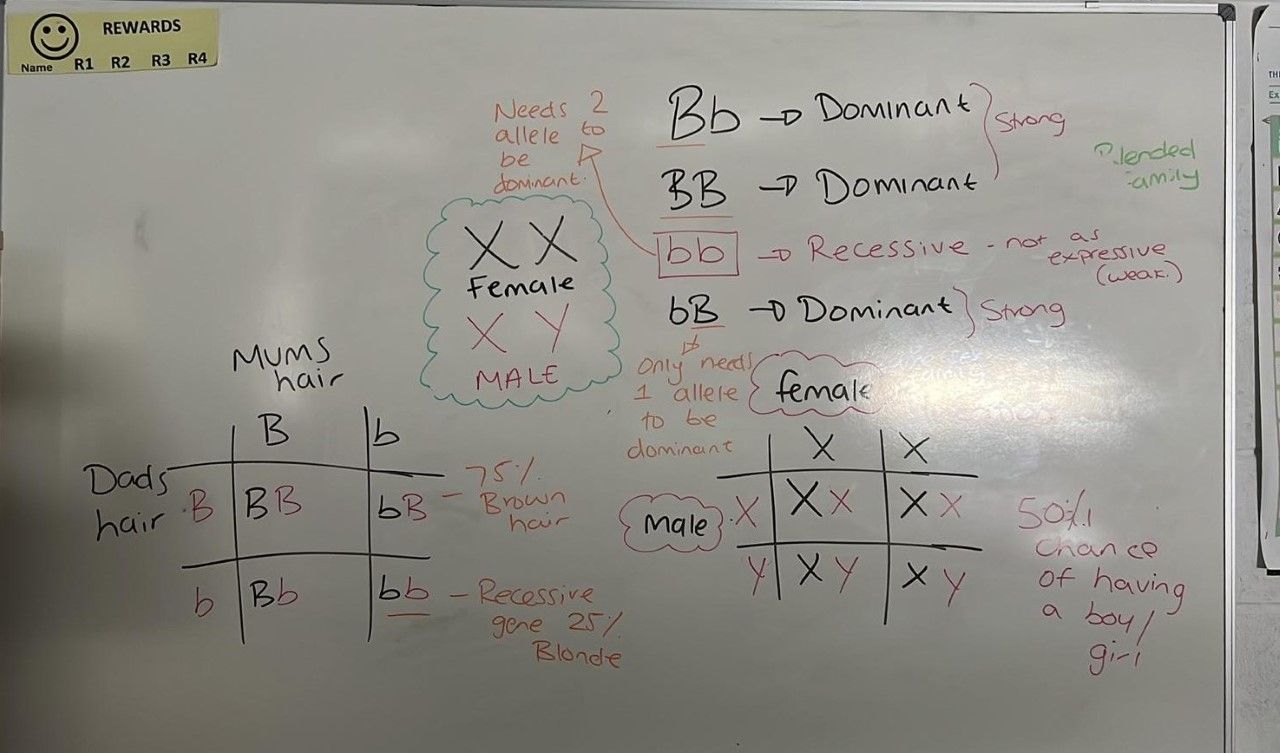 REWARDS
Name R1 R2 R3 R4
Needs 2
allele to
be
dominant.
Bb → Dominant
BB → Dominant
Strong
bb → Recessive - not as
expressive
(weak.)
bB → Dominant
Strong
only needs
1 allele
to be
dominant
XX
Female
XY
MALE
Mums
hair
B b
Dads
hair
B BB bB
b Bb bb
- 75%
Brown
hair
- Recessive
gene 25%
Blonde
female
X X
Male
X XX XX
Y XY XY
50%
chance
of having
a boy/
girl